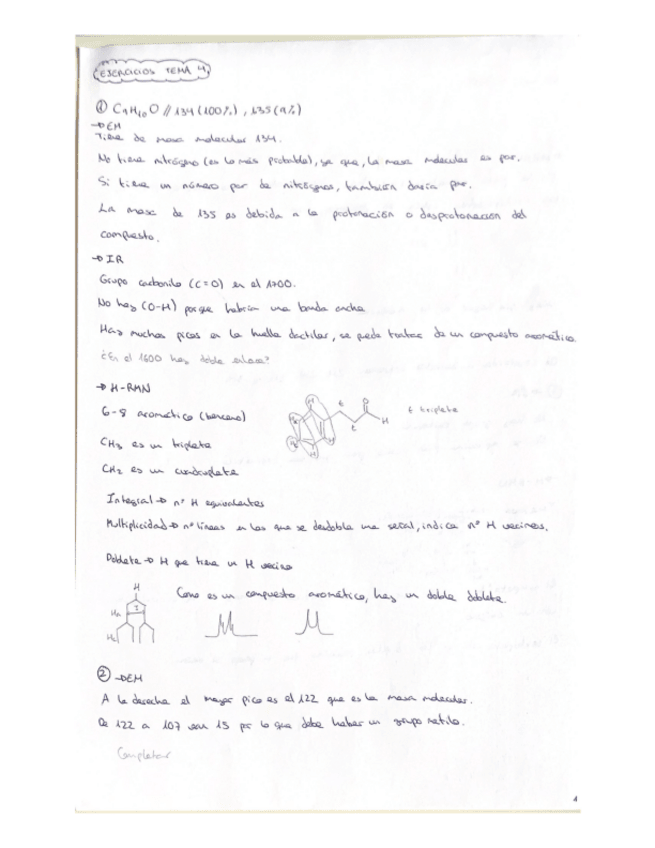 EJERCICIOS TEMA 4
① C9H10O // 134 (100%), 135 (9%)
→ EM
Tiene de masa molecular 134.
No tiene nitrógeno (es lo más probable), ya que, la masa molecular es par.
Si tiene un número par de nitrógenos, también daría par.
La masa de 135 es debida a la protonación o desprotonación del
compuesto.
→ IR
Grupo carbonilo (C=O) en el 1700.
No hay (O-H) porque habría una banda ancha
Hay muchos picos en la huella dactilar, se puede tratar de un compuesto aromático.
¿En el 1600 hay doble enlace?
→ H-RMN
6-8 aromático (benceno)
CH3 es un triplete
CH2 es un cuadruplete
H
O
H
t
t
t triplete
Integral → nº H equivalentes
Multiplicidad → nº líneas en las que se desdobla una señal, indica nº H vecinos.
Doblete → H que tiene un H vecino
H
Como es un compuesto aromático, hay un doble doblete.
② → EM
A la derecha el mayor pico es el 122 que es la masa molecular.
De 122 a 107 van 15 por lo que debe haber un grupo metilo.
Completar
4